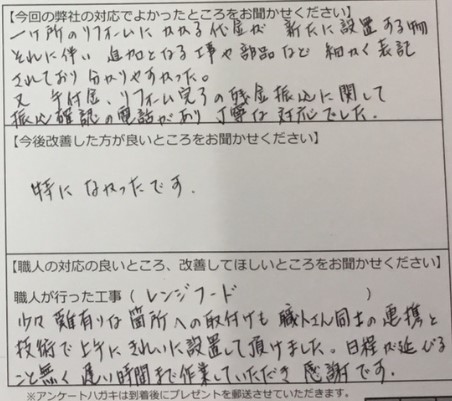 【今回の弊社の対応でよかったところをお聞かせください】
一ヶ所のリフォームにかかる代金が 新たに設置する物
それに伴い 追加となる工事や部品など 細かく表記
されており 分かりやすかった。
又 手付金、リフォーム完了の残金振込に関して
振込確認の電話があり 丁寧な対応でした.
【今後改善した方が良いところをお聞かせください】
特に なかったです.
【職人の対応の良いところ、改善してほしいところをお聞かせください】
職人が行った工事（ レンジフード ）
少々 難有りな箇所への取付けも 職人さん同士の連携と
技術で上手にきれいに設置して頂けました。日程が延びる
こと無く 遅い時間まで作業していただき 感謝です.
※アンケートハガキは到着後にプレゼントを郵送させていただきます。